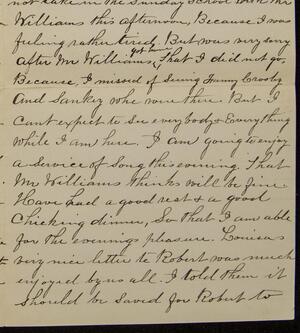 not take in the Sunday School with Mr
Williams this afternoon, Because I was
feeling rather tired, But was very sorry
after Mr Williams, got home, That I did not go,
Because, I missed of Seeing Fanny Crosby
And Sankey who were there. But I
cant expect to See everybody & Everything
while I am here. I am going to enjoy
a Service of Song this evening. That
Mr Williams thinks will be fine.
Have had a good rest & a good
Chicking dinner, So that I am able
for the evenings pleasure. Louisas
very nice letter to Robert was much
enjoyed by us all. I told them it
Should be Saved for Robert to